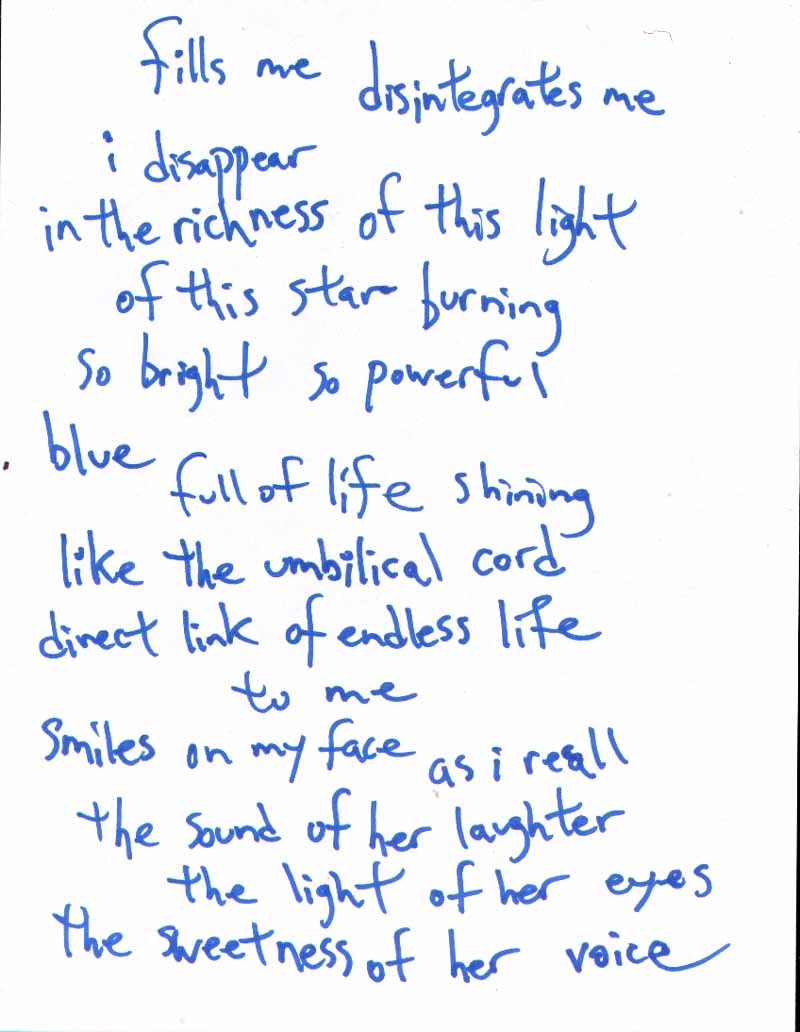 fills me disintegrates me
i disappear
in the richness of this light
of this star burning
so bright so powerful
blue full of life shining
like the umbilical cord
direct link of endless life
to me
Smiles on my face as i reall
the sound of her laughter
the light of her eyes
the sweetness of her voice